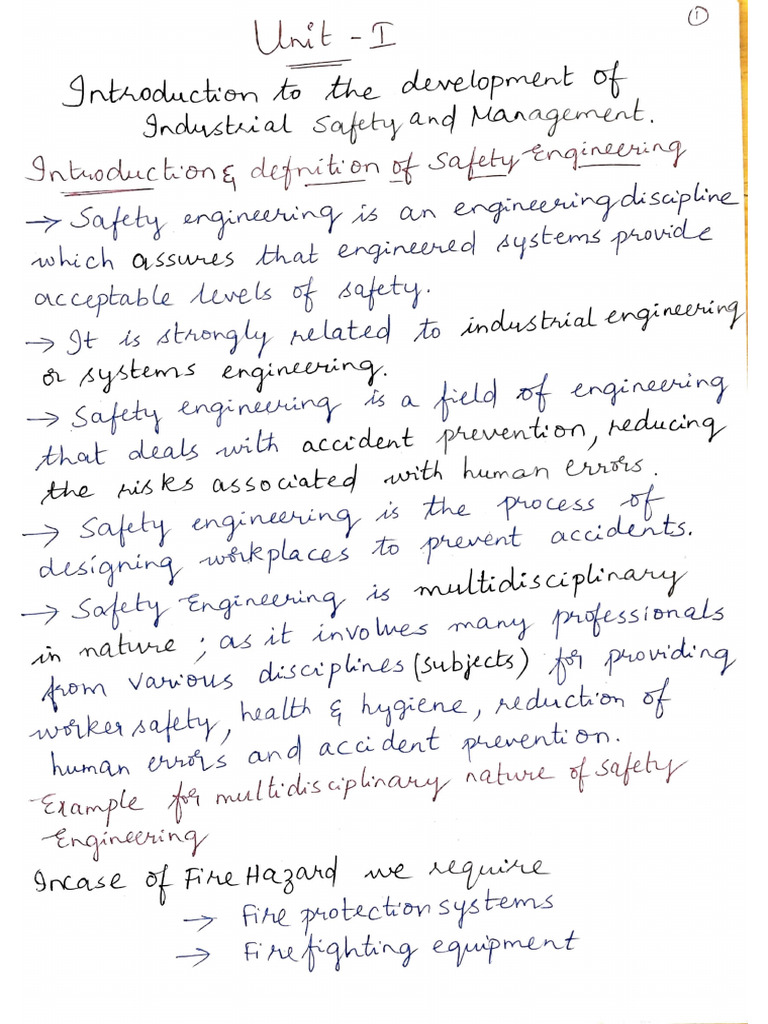 ①
Unit - I
Introduction to the development of
Industrial Safety and Management.
Introduction & defnition of Safety Engineering
→ Safety engineering is an engineering discipline
which assures that engineered systems provide
acceptable levels of safety.
→ It is strongly related to industrial engineering
or systems engineering.
→ Safety engineering is a field of engineering
that deals with accident prevention, reducing
the risks associated with human errors.
→ Safety engineering is the process of
designing workplaces to prevent accidents.
→ Safety Engineering is multidisciplinary
in nature; as it involves many professionals
from various disciplines (subjects) for providing
worker safety, health & hygiene, reduction of
human errors and accident prevention.
Example for multidisciplinary nature of Safety
Engineering
Incase of Fire Hazard we require
→ Fire protection systems
→ Fire fighting equipment